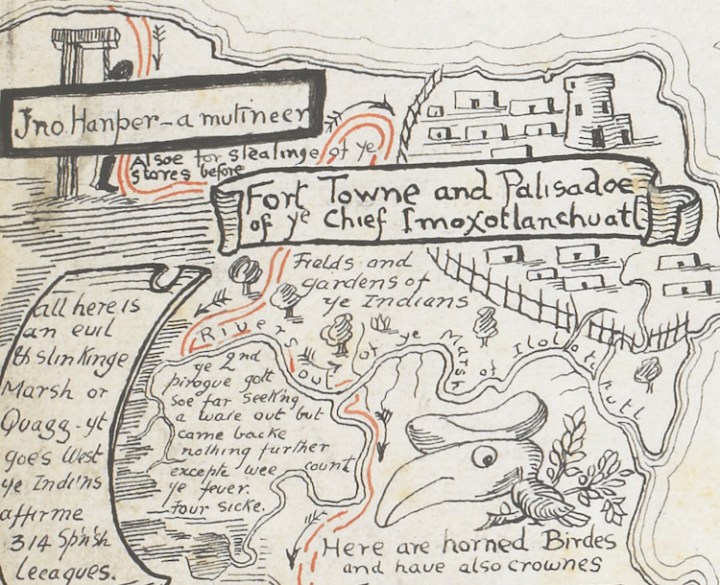 Jno. Hanper - a mutineer
Alsoe for stealinge of ye
stores before
Fort Towne and Palisadoe
of ye Chief Imoxotlanchuatl
Fields and
gardens of
ye Indians
all here is
an euil
& slinKinge
Marsh or
Quagg-yt
goes West
ye Indi'ns
affirme
314 Sp'nish
Leeagues.
Rivers out of ye Marsh of
ye 2nd
pirogue gott
soe far seeking
a waie out but
came backe
nothing further
excepte wee count
ye fever.
Four sicke.
Here are horned Birdes
and have also crownes